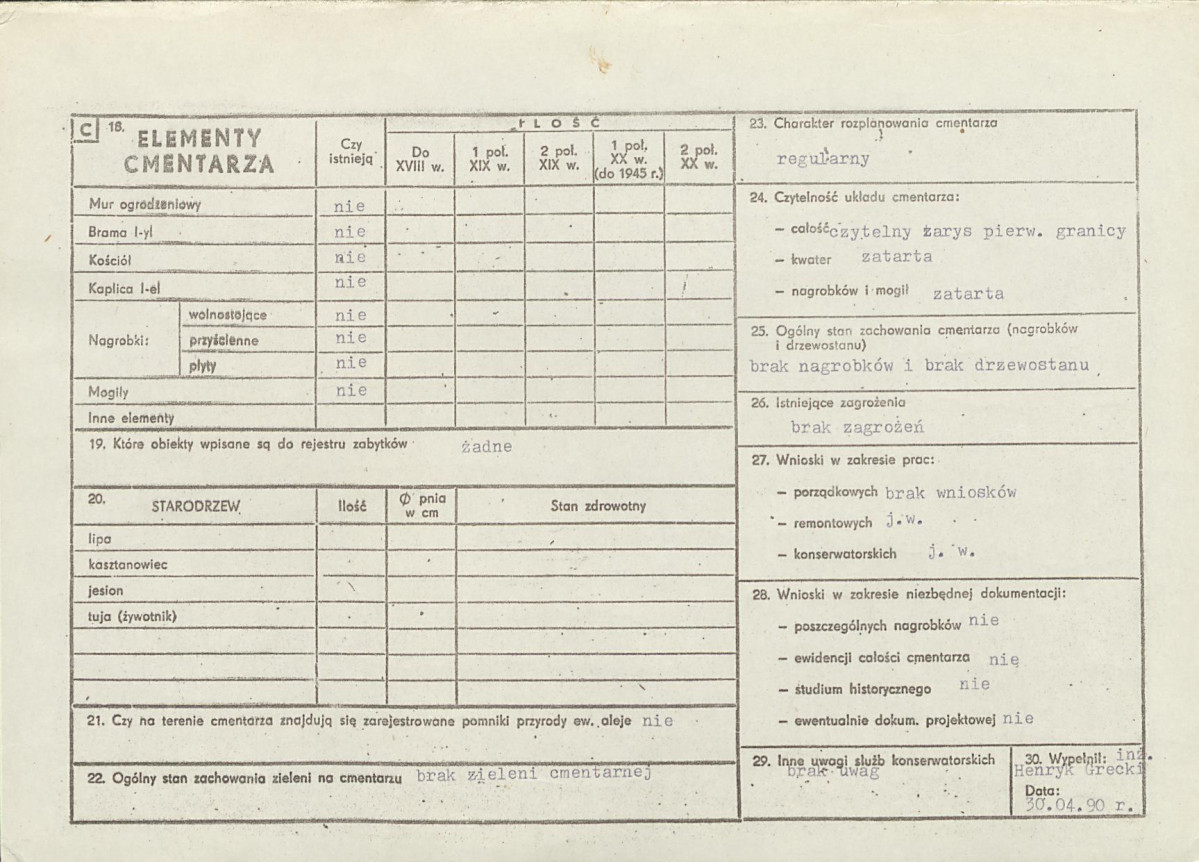 C 18. ELEMENTY
CMENTARZA
Czy
istnieją
IŁOŚĆ
Do
XVIII w.
1 poł.
XIX w.
2 poł.
XIX w.
1 poł.
XX w.
(do 1945 r.)
2 poł.
XX w.
Mur ogrodzeniowy nie
Brama I-yl nie
Kościół nie
Kaplica I-el nie
Nagrobki:
wolnostojące nie
przyścienne nie
płyty nie
Mogiły nie
Inne elementy
19. Które obiekty wpisane są do rejestru zabytków żadne
20. STARODRZEW Ilość Ø pnia
w cm
Stan zdrowotny
lipa
kasztanowiec
jesion
tuja (żywotnik)
21. Czy na terenie cmentarza znajdują się zarejestrowane pomniki przyrody ew. aleje nie
22. Ogólny stan zachowania zieleni na cmentarzu brak zieleni cmentarnej
23. Charakter rozplanowania cmentarza
regularny
24. Czytelność układu cmentarza:
— całość czytelny zarys pierw. granicy
— kwater zatarta
— nagrobków i mogił zatarta
25. Ogólny stan zachowania cmentarza (nagrobków
i drzewostanu)
brak nagrobków i brak drzewostanu
26. Istniejące zagrożenia
brak zagrożeń
27. Wnioski w zakresie prac:
— porządkowych brak wniosków
— remontowych j.w.
— konserwatorskich j. w.
28. Wnioski w zakresie niezbędnej dokumentacji:
— poszczególnych nagrobków nie
— ewidencji całości cmentarza nie
— studium historycznego nie
— ewentualnie dokum. projektowej nie
29. Inne uwagi służb konserwatorskich
brak uwag
30. Wypełnił: inż.
Henryk Grecki
Data:
30.04.90 r.